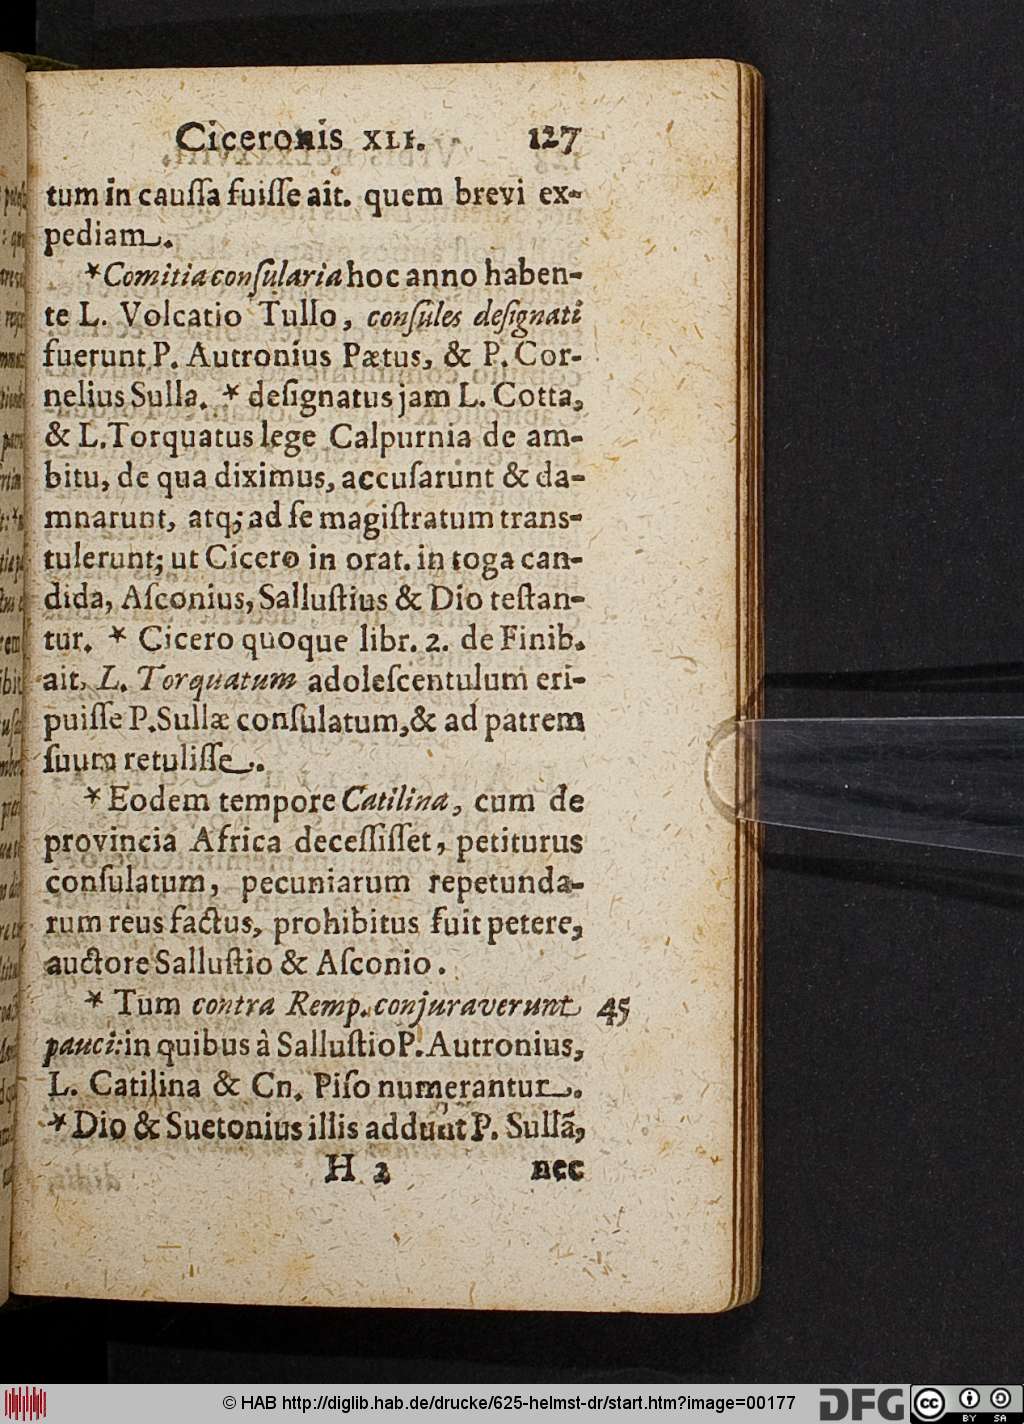 Ciceronis XLI. 127
tum in cauſſa fuiſſe ait. quem brevi ex-
pediam.
*Comitia conſularia hoc anno haben-
te L. Volcatio Tullo, conſules deſignati
fuerunt P. Autronius Pætus, & P. Cor-
nelius Sulla. * deſignatus jam L. Cotta,
& L. Torquatus lege Calpurnia de am-
bitu, de qua diximus, accuſarunt & da-
mnarunt, atq; ad ſe magiſtratum trans-
tulerunt; ut Cicero in orat. in toga can-
dida, Aſconius, Salluſtius & Dio teſtan-
tur. * Cicero quoque libr. 2. de Finib.
ait, L. Torquatum adoleſcentulum eri-
puiſſe P. Sullæ conſulatum, & ad patrem
ſuum retuliſſe.
* Eodem tempore Catilina, cum de
provincia Africa deceſſiſſet, petiturus
conſulatum, pecuniarum repetunda-
rum reus factus, prohibitus fuit petere,
auctore Salluſtio & Aſconio.
* Tum contra Remp. conjuraverunt 45
pauci: in quibus à Salluſtio P. Autronius,
L. Catilina & Cn. Piſo numerantur.
* Dio & Suetonius illis addunt P. Sullã,
H 2 nec
© HAB http://diglib.hab.de/drucke/625-helmst-dr/start.htm?image=00177
DFG
cc
BY SA